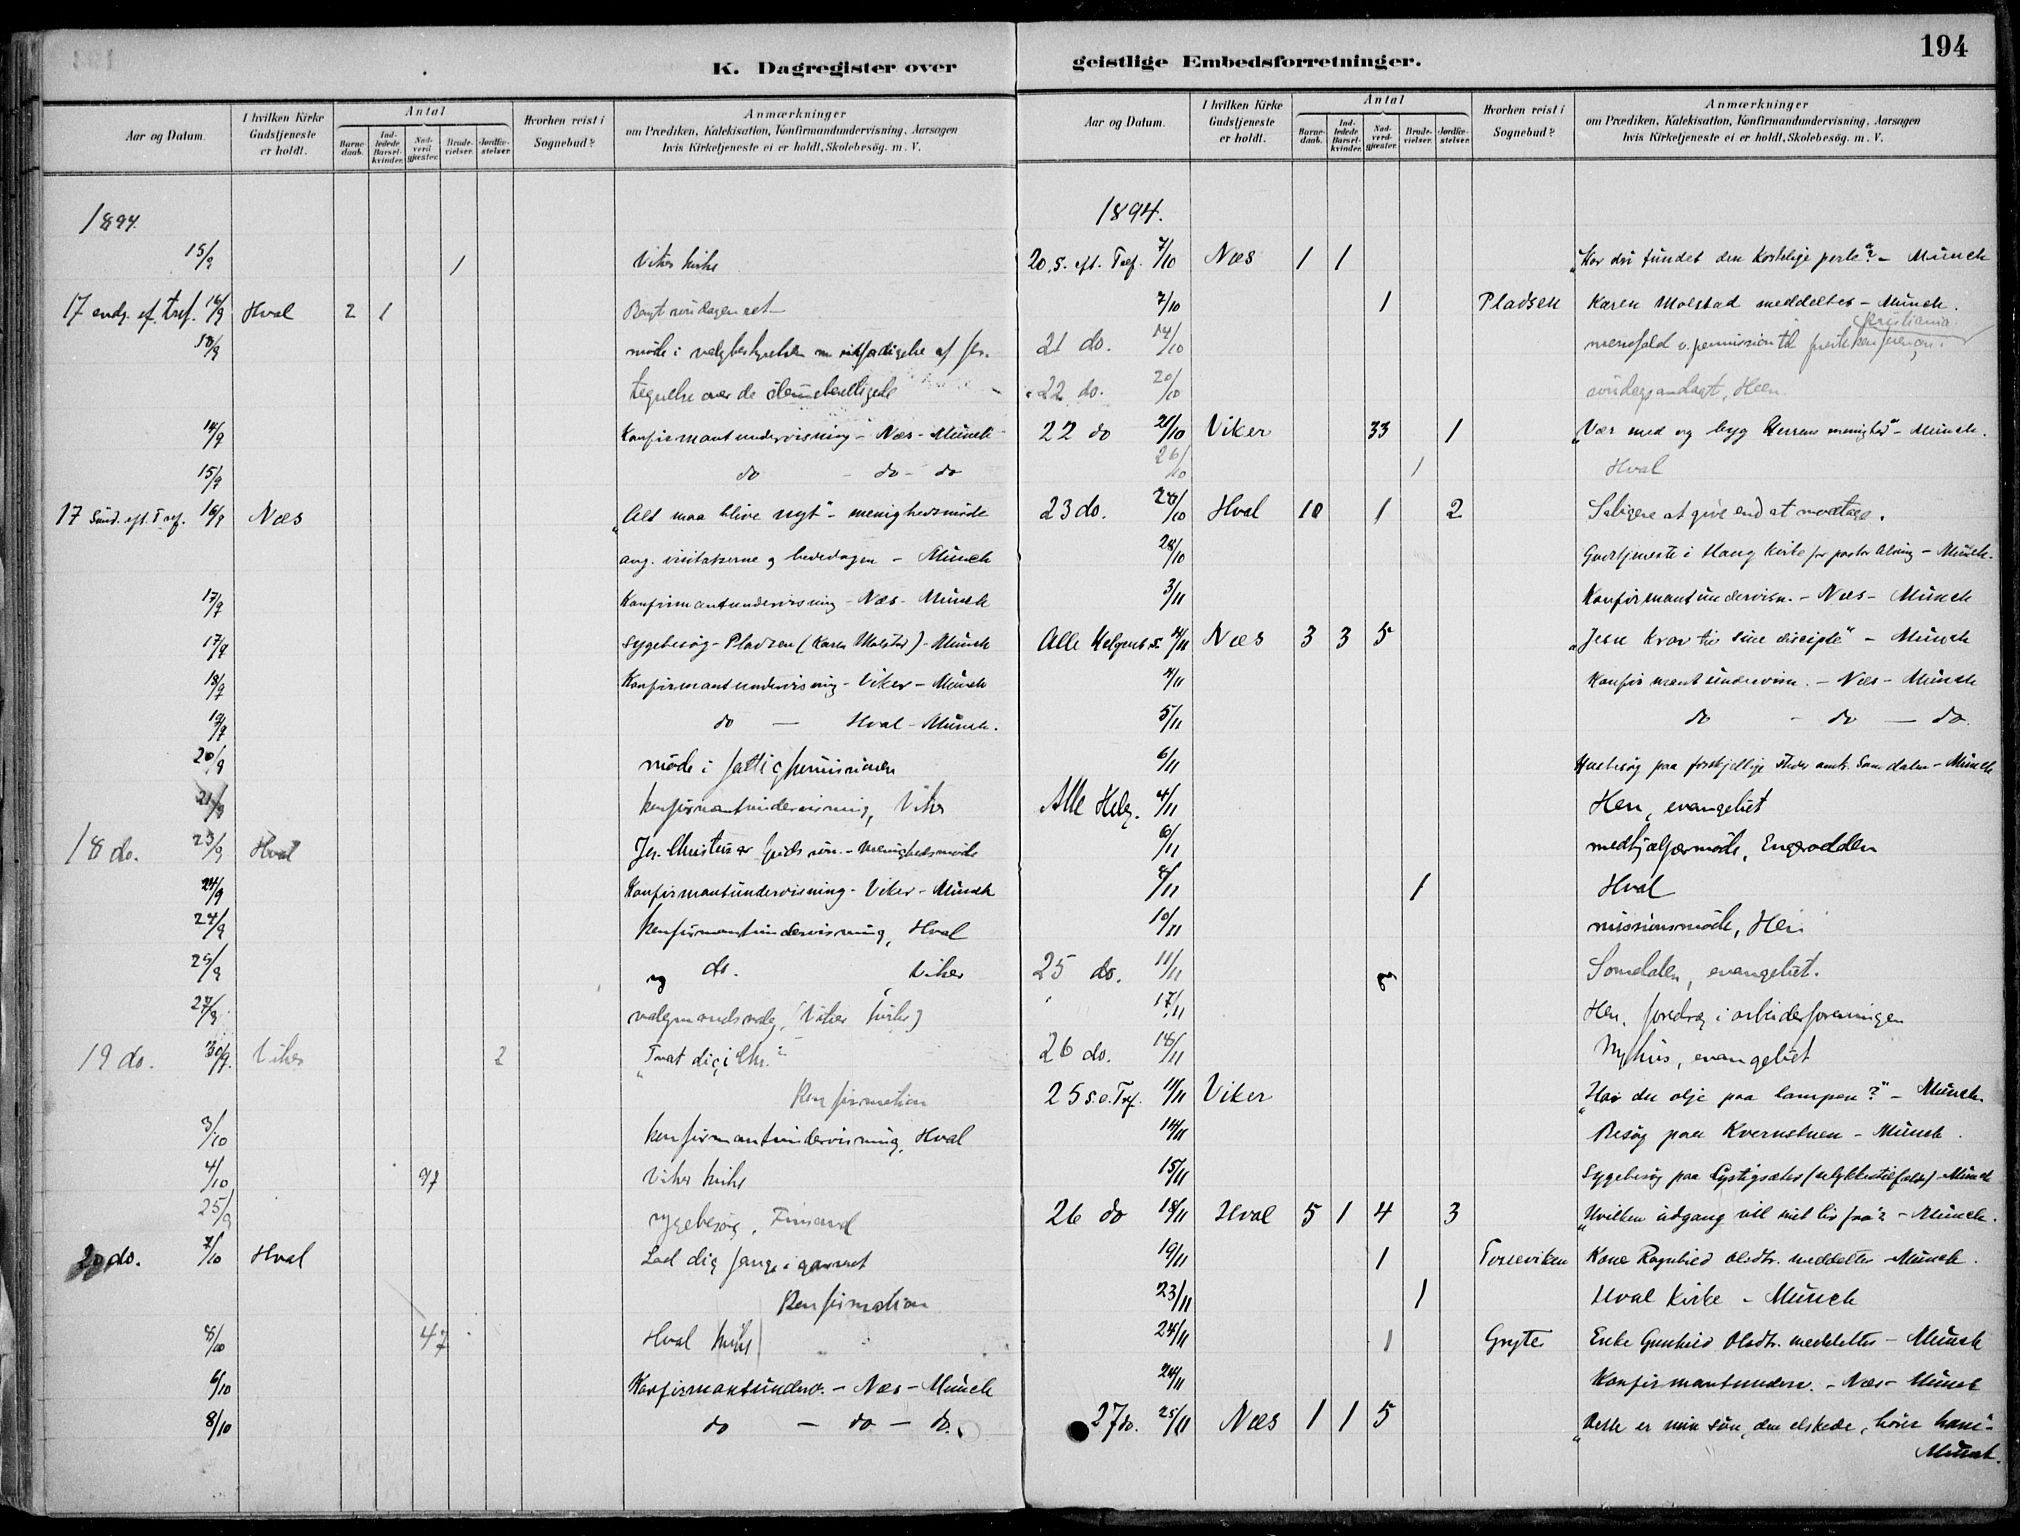 K. Dagregister over
geistlige Embedsforretninger.
194
Aar og Datum.
I hvilken Kirke Gudstjeneste er holdt.
Antal
Barnedaab.
Indledede Barselkvinder.
Nadverdgjæster.
Brudevielser.
Jordfæstelser.
Hvorhen reist i Sognebud?
Anmærkninger
om Prædiken, Katekisation, Konfirmandundervisning, Aarsagen
hvis Kirketjeneste ei er holdt, Skolebesøg. m. V.
1894.
15/9 1 Viker kirke
17 16/9 Hval 2 1
møde i valgbestyrelsen af
tegnelse over de stemmeberettigede
14/9 Konfirmantundervisning - Næs - Münch
15/9 do - do - do
17 Sund. eft. Tref. 16/9 Næs „Alt maa blive nyt" - menighedsmøde
ang. visitatserne og bededagen - Münch
17/9 Konfirmantundervisning - Næs - Münch
17/9 Sygebesøg - Pladsen (Karen Molstad) - Münch
18/9 Konfirmantundervisning - Viker - Münch
19/9 do — Hval - Münch.
20/9 møde i
21/9 konfirmantundervisning, Viker
18 do. 23/9 Hval Jes. Christus er Guds søn. - menighedsmøde
24/9 Konfirmantundervisning - Viker - Münch
24/9 konfirmantundervisning, Hval
25/9 og do. , Viker
27/9 valgmandsvalg, (Viker kirke)
19 do. 30/9. Viker 2
Konfirmation
3/10 konfirmantundervisning, Hval
4/10 97 Viker kirke
25/9 sygebesøg,
20 do. 7/10 Hval Lad dig fange i garnet
Konfirmation
8/10 47 Hval kirke
6/10 Konfirmantunderv. - Næs - Münch
8/10 do — do — do.
Aar og Datum.
I hvilken Kirke Gudstjeneste er holdt.
Antal
Barnedaab.
Indledede Barselkvinder.
Nadverdgjæster.
Brudevielser.
Jordfæstelser.
Hvorhen reist i Sognebud?
Anmærkninger
om Prædiken, Katekisation, Konfirmandundervisning, Aarsagen
hvis Kirketjeneste ei er holdt, Skolebesøg. m. V.
1894.
20. S. eft. Tref. 7/10 Næs 1 1 „Har du fundet den kostelige perle"? - Münch
7/10 1 Pladsen Karen Molstad meddeltes - Münch.
Kristiania.
21 do. 14/10 messefald p. permission til
22 do. 20/10 søndagsandagt, Heen
22 do 21/10 Viker 33 1 „Vær med og byg Herrens menighed" - Münch.
26/10 1 Hval
23 do. 28/10 Hval 10 1 2 Saligere at give end at modtage.
28/10 Gudstjeneste i Haug Kirke for pastor - Münch.
3/11 Konfirmantundervisn. - Næs - Münch
Alle Helgens s. 4/11 Næs 3 3 5 „Jesu krav til sine disciple" - Münch
4/11 Konfirmantundervisn. - Næs - Münch
5/11 do - do — do.
6/11 Husbesøg paa forskjellige steder Somdalen - Münch
Alle Helg. 4/11 Hen, evangeliet
6/11 medhjælpermøde, Engerodden
8/11 1 Hval
10/11 missionsmøde, Hen
25 do. 11/11 Somdalen, evangeliet.
17/11 Hen, foredrag i arbeiderforeningen
26 do. 18/11 Nyhus, evangeliet
25 s. e. Tref. 11/11 Viker „Har du olje paa lampen?" - Münch.
14/11 Besøg paa Kvernstuen - Münch.
15/11 Sygebesøg paa (ulykkestilfælde) - Münch
26 do 18/11 Hval 5 1 4 3 „Hvilken udgang vil mit liv faa"? - Münch.
19/11 1 Kone Ragnhild Olsdtr. meddeltes - Münch.
23/11 1 Hval Kirke - Münch
24/11 1 Gryte Enke Gunhild Olsdtr. meddeltes - Münch
24/11 Konfirmantunderv. - Næs - Münch
27 do. 25/11 Næs 1 1 5 „Dette er min søn, den elskede, hører ham" -
Münch.